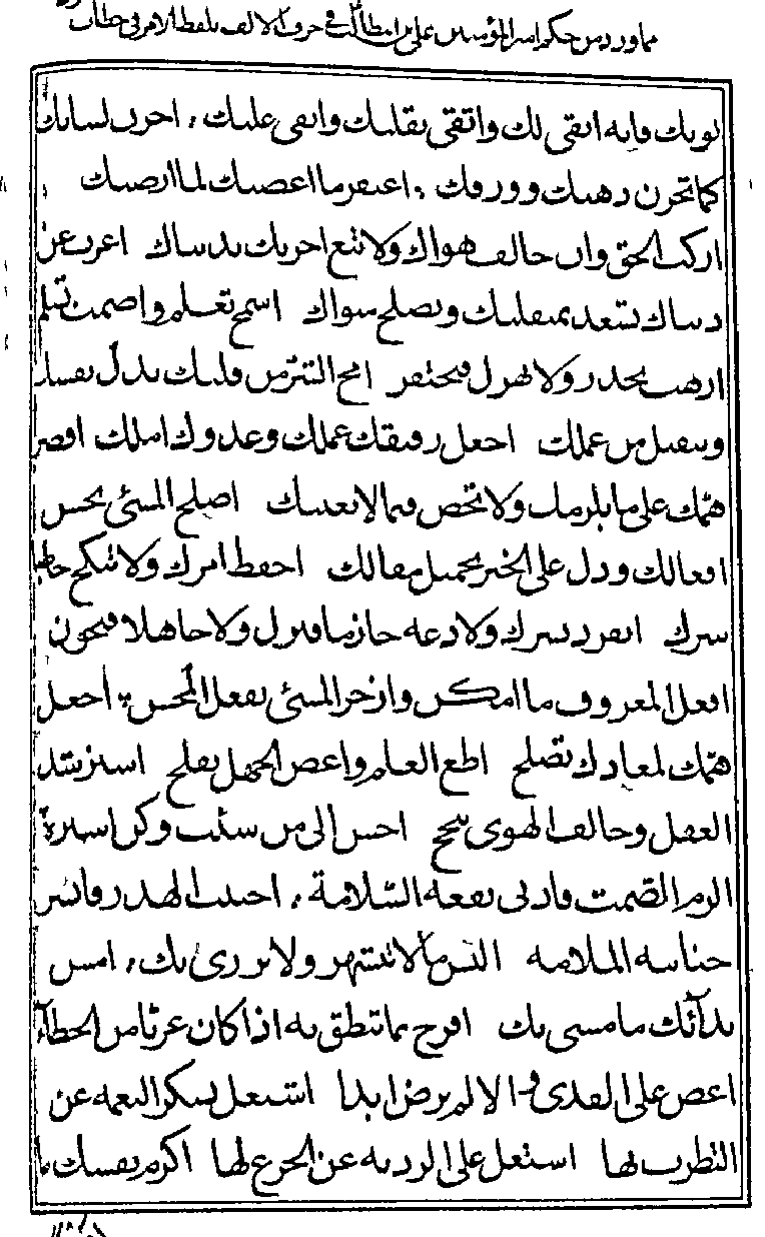 مما ورد من حكم امير المؤمنين علي بن ابيطالب في حرف الالف بلفظ الامر في خطاب
ثوبك فانه انقى لك واتقى لقلبك وابقى عليك اخزن لسانك
كما تخزن ذهبك وورقك اغتفر ما اغضبك لما ارضاك
اركب الحق وان خالف هواك ولا تبع اخرتك بدنياك اعزب عن
دنياك تسعد بمنقلبك وتصلح مثواك اسمع تعلم واصمت تسلم
ارهب تحذر ولا تهزل فتحتقر
وتنقص من عملك اجعل رفيقك عملك وعدوك املك اقصر
همك على ما يلزمك ولا تخض فيما لا يعنيك اصلح المسئ بحسن
افعالك ودل على الخير بجميل مقالك احفظ امرك ولا تنكح خاطب
سرك انفرد بسرك ولا تودعه حازما فيزل ولا جاهلا فيخون
افعل المعروف ما امكن وازجر المسئ بفعل المحسن اجعل
همك لمعادك تصلح اطع العلم واعص الجهل تفلح استرشد
العقل وخالف الهوى تنجح احسن الى من شئت وكن اميره
الزم الصمت فادنى نفعه السلامة اجتنب الهذر فايسر
جنايته الملامة البس ما لا تشتهر به ولا يزرى بك امش
بدائك ما مشى بك افرح بما تنطق به اذا كان عريا من الخطاء
اغض على القذى والا لم ترض ابدا اشتغل بشكر النعمة عن
التطرب بها اشتغل بالصبر على الرزية عن الجزع لها اكرم نفسك ما